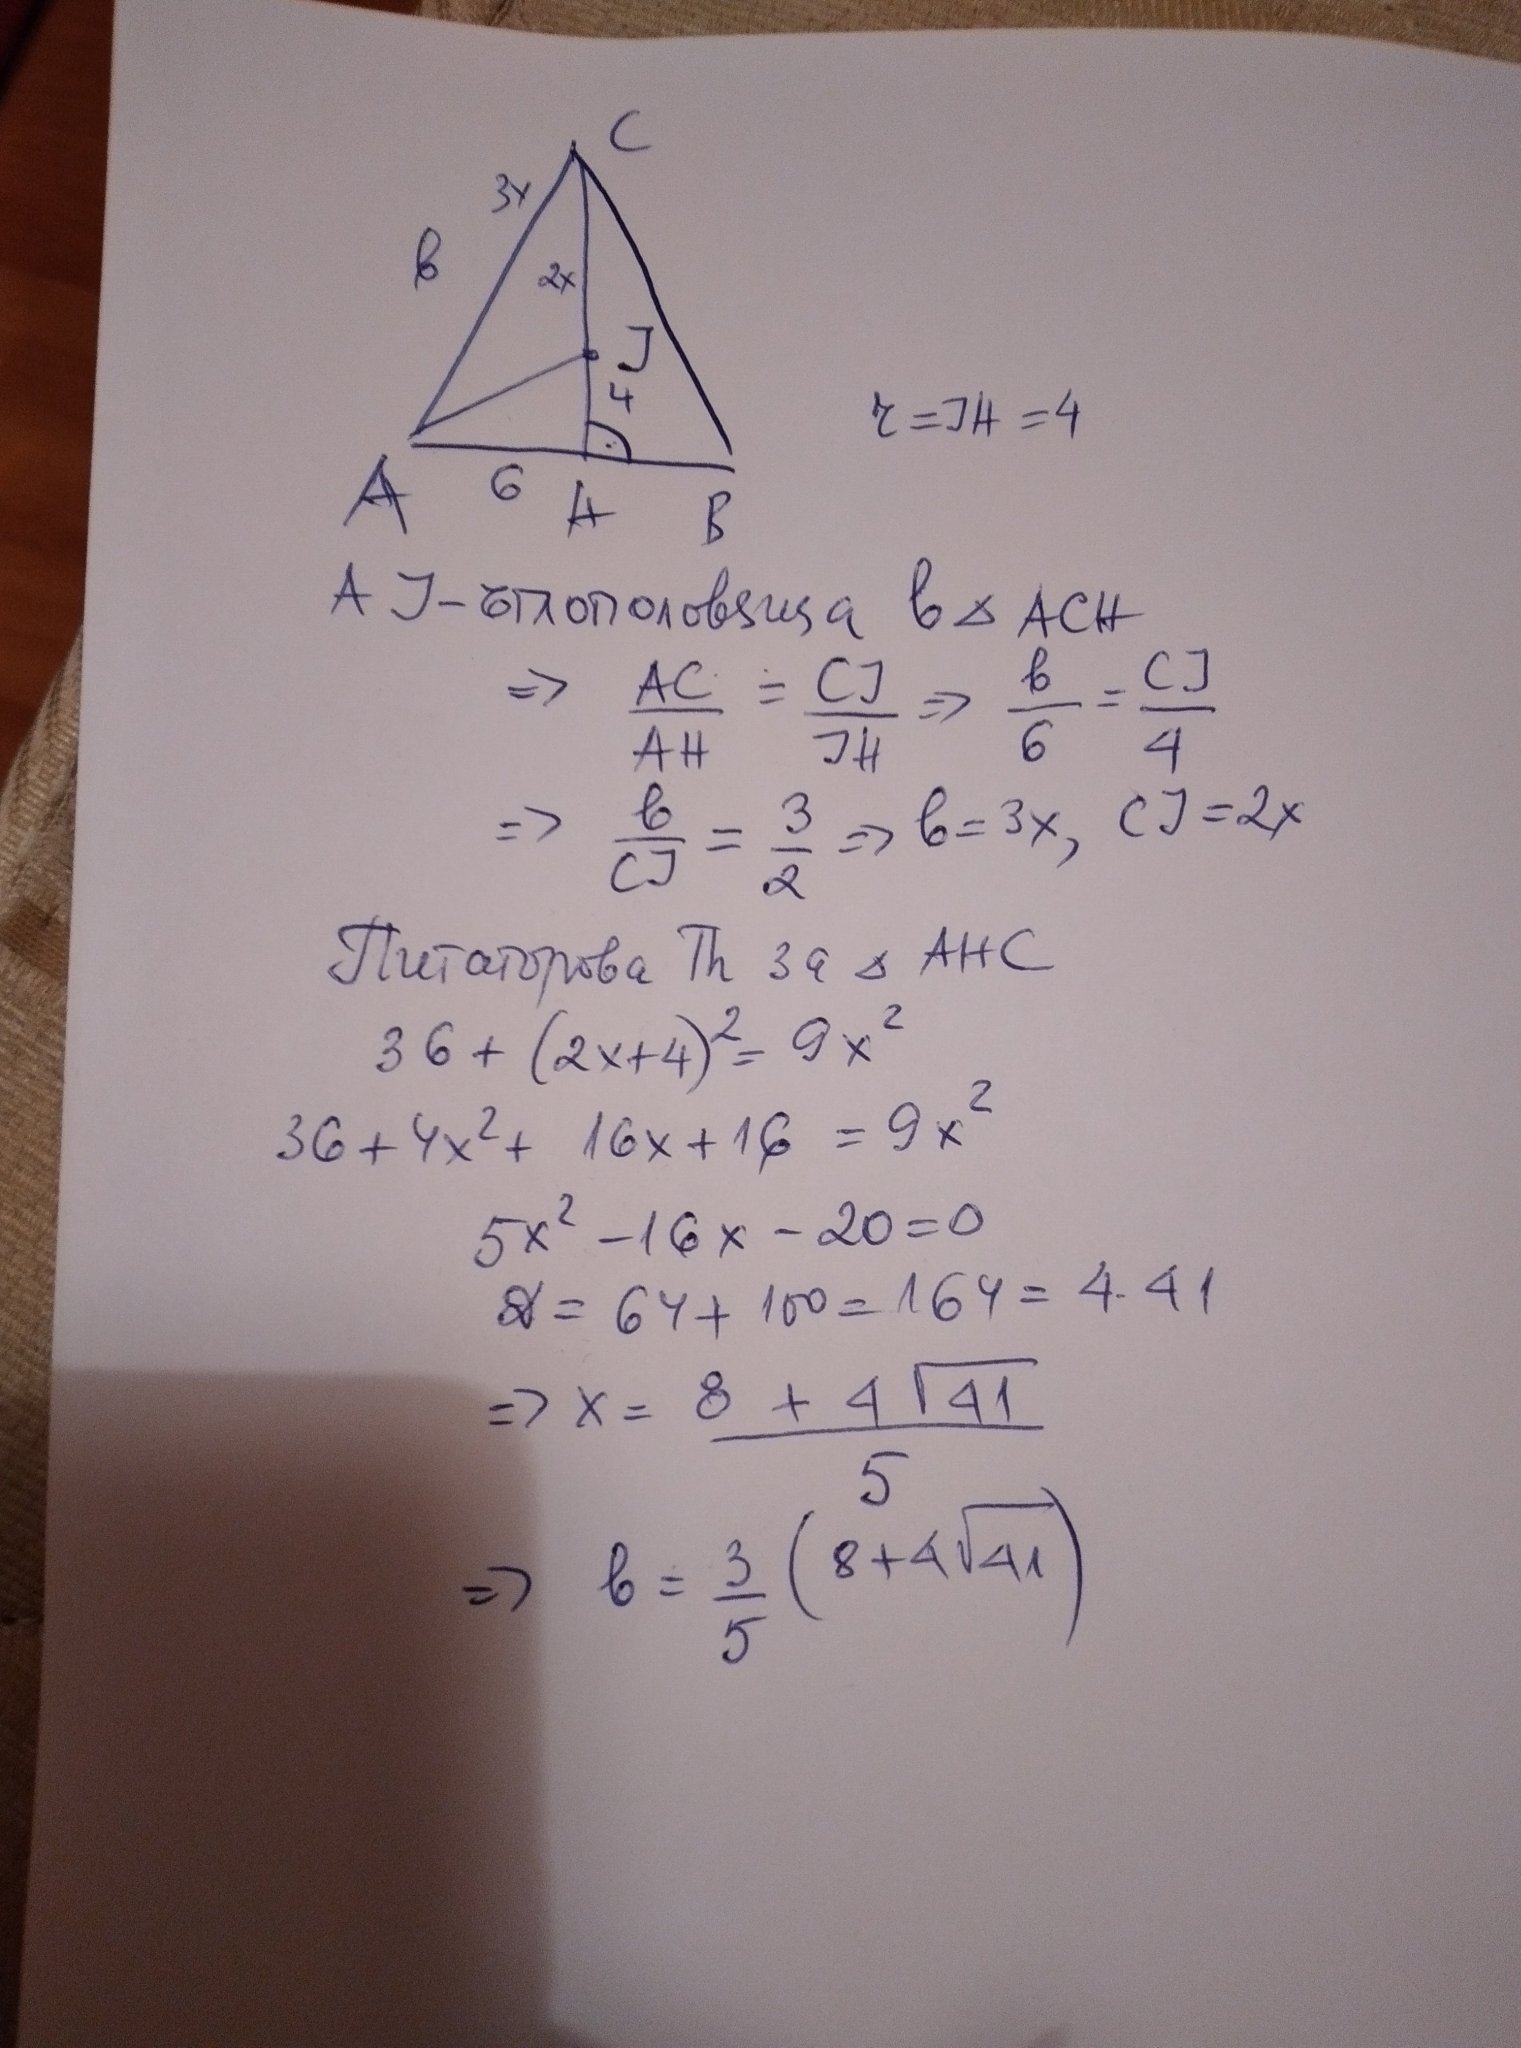 C
3x
b
2x
J
4
r = JH = 4
A 6 H B
AJ - ъглополовяща в △ ACH
=> AC/AH = CJ/JH => b/6 = CJ/4
=> b/CJ = 3/2 => b = 3x, CJ = 2x
Питагорова Th за △ AHC
36 + (2x+4)² = 9x²
36 + 4x² + 16x + 16 = 9x²
5x² - 16x - 20 = 0
= 64 + 100 = 164 = 4.41
=> x = (8 + 4√41)/5
=> b = 3/5 (8+4√41)